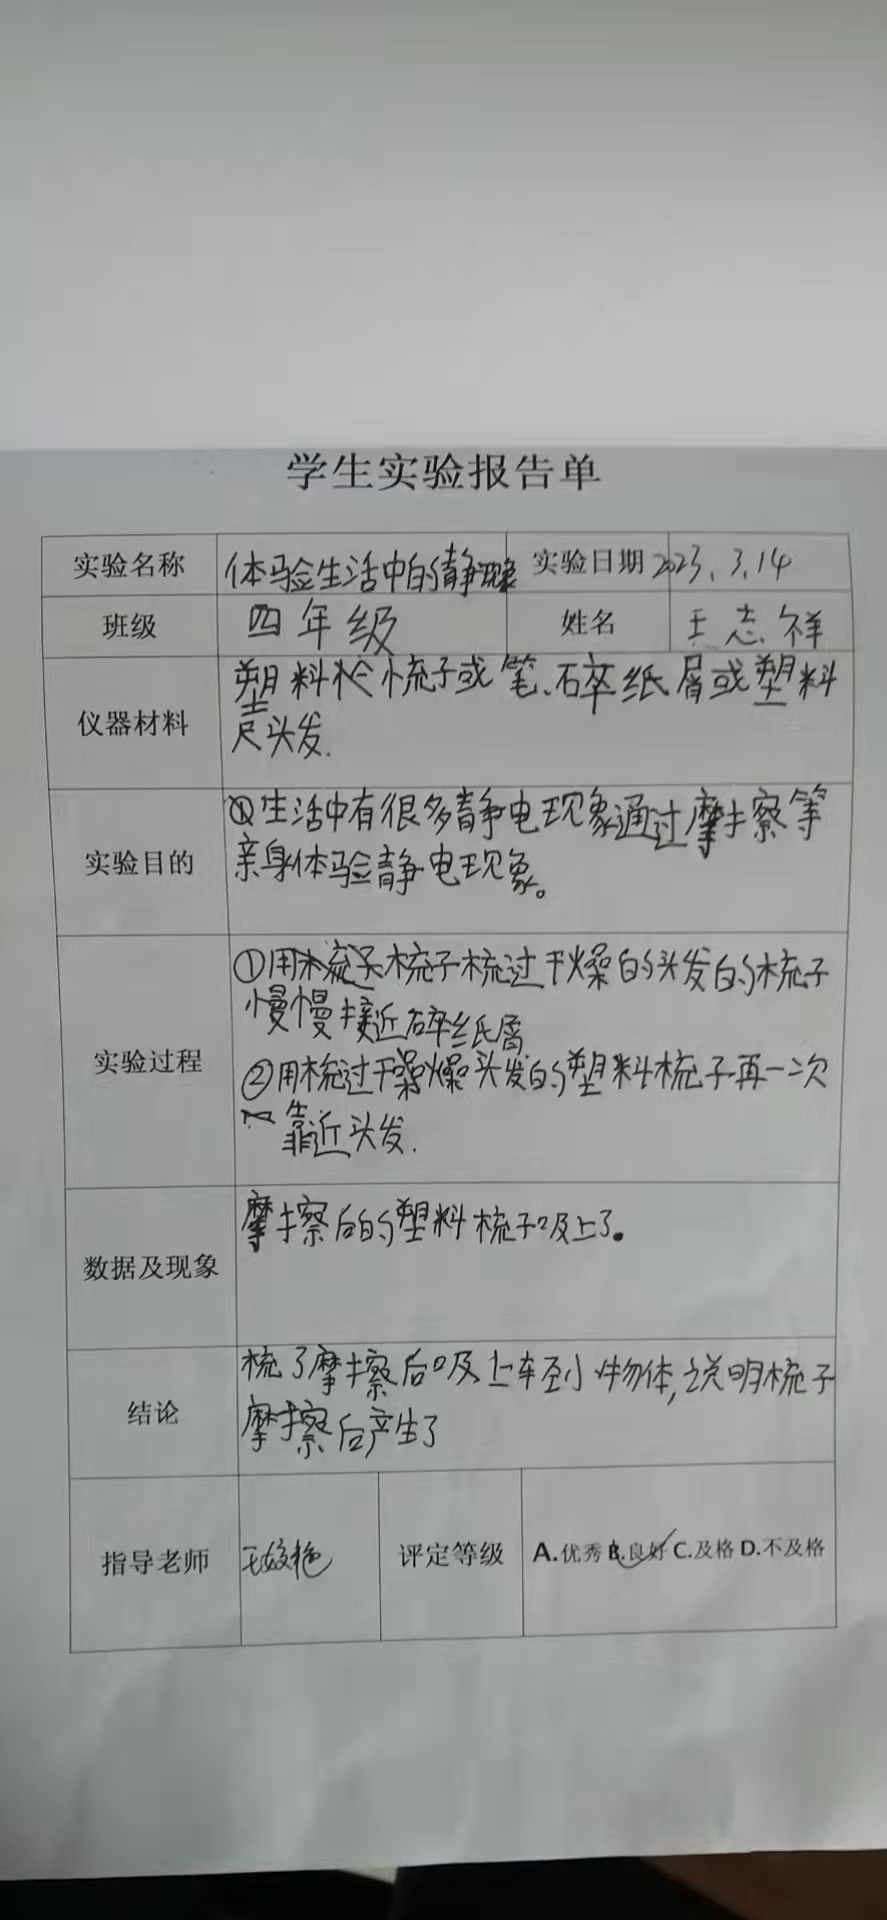 学生实验报告单
实验名称 体验生活中的静现象 实验日期 2023.3.14
班级 四年级 姓名 王志祥
仪器材料 塑料 梳子或笔、碎纸屑或塑料
尺头发.
实验目的 生活中有很多静电现象通过摩擦等
亲身体验静电现象。
实验过程 ①用 梳子梳过干燥的头发的梳子
慢慢接近碎纸屑
②用梳过干燥头发的塑料梳子再一次
靠近头发.
数据及现象 摩擦后的塑料梳子吸上了。
结论 梳了摩擦后吸上车至小物体,说明梳子
摩擦后产生了
指导老师 王姣艳 评定等级 A.优秀 B.良好 C.及格 D.不及格